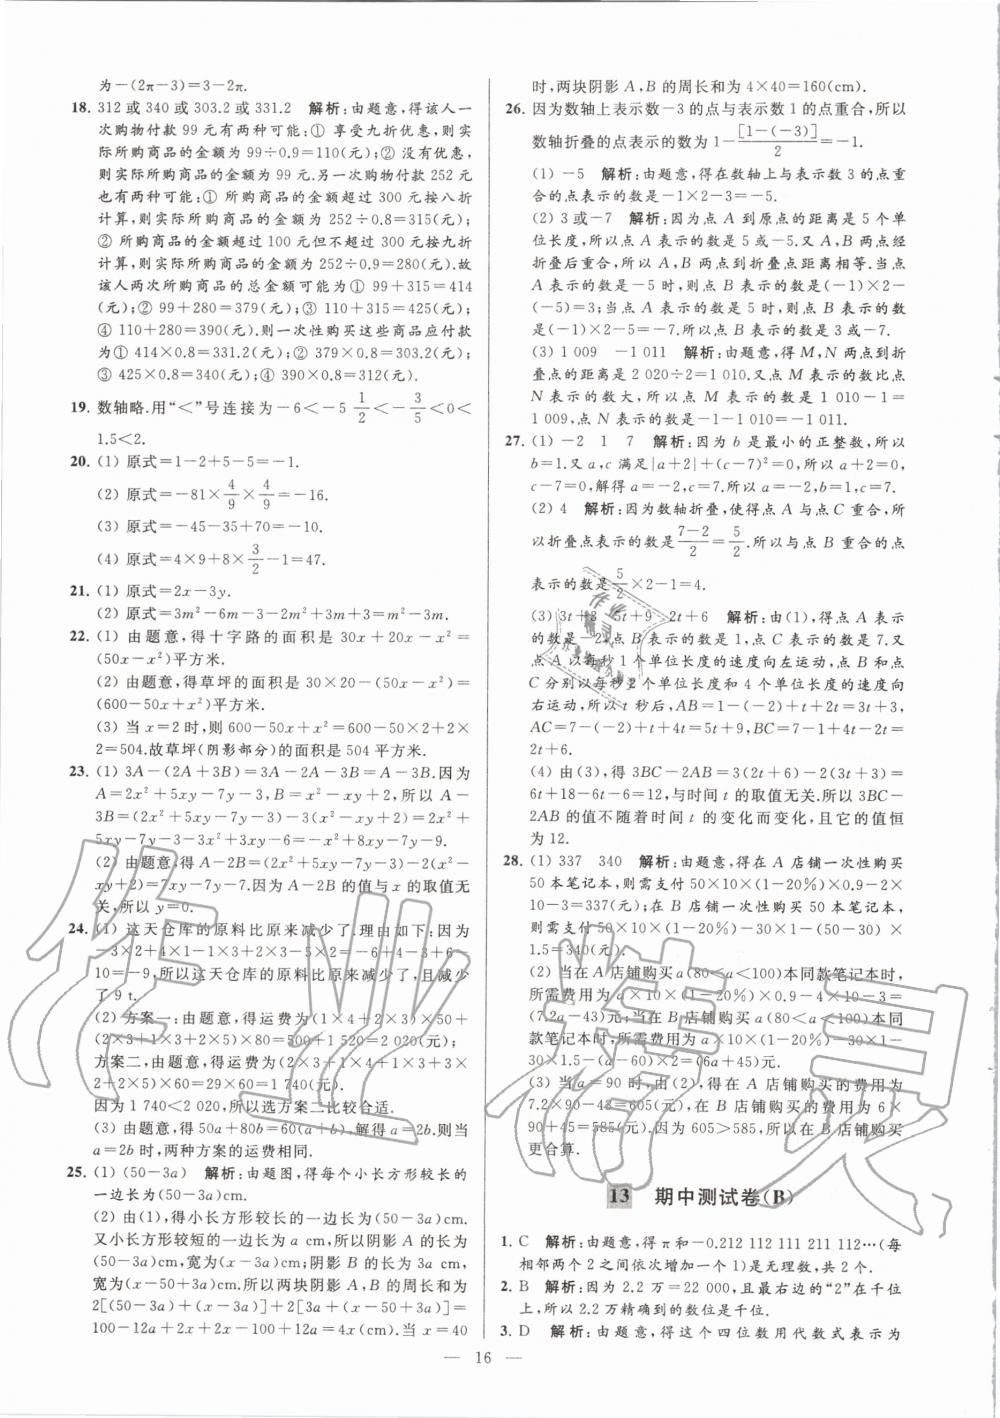 为－(2π－3)＝3－2π.
18. 312 或 340 或 303.2 或 331.2　解析：由题意，得该人一
次购物付款 99 元有两种可能：① 享受九折优惠，则实
际所购商品的金额为 99÷0.9＝110(元)；② 没有优惠，
则实际所购商品的金额为 99 元.另一次购物付款 252 元
也有两种可能：① 所购商品的金额超过 300 元按八折
计算，则实际所购商品的金额为 252÷0.8＝315(元)；
② 所购商品的金额超过 100 元但不超过 300 元按九折
计算，则实际所购商品的金额为 252÷0.9＝280(元).故
该人两次所购商品的总金额可能为① 99＋315＝414
(元)；② 99＋280＝379(元)；③ 110＋315＝425(元)；
④ 110＋280＝390(元).则一次性购买这些商品应付款
为① 414×0.8＝331.2(元)；② 379×0.8＝303.2(元)；
③ 425×0.8＝340(元)；④ 390×0.8＝312(元).
19. 数轴略.用“＜”号连接为－6＜－5 1/2＜－3/5＜0＜
1.5＜2.
20. (1) 原式＝1－2＋5－5＝－1.
(2) 原式＝－81×4/9×4/9＝－16.
(3) 原式＝－45－35＋70＝－10.
(4) 原式＝4×9＋8×3/2－1＝47.
21. (1) 原式＝2x－3y.
(2) 原式＝3m²－6m－3－2m²＋3m＋3＝m²－3m.
22. (1) 由题意，得十字路的面积是 30x＋20x－x²＝
(50x－x²)平方米.
(2) 由题意，得草坪的面积是 30×20－(50x－x²)＝
(600－50x＋x²)平方米.
(3) 当 x＝2 时，则 600－50x＋x²＝600－50×2＋2×
2＝504.故草坪(阴影部分)的面积是 504 平方米.
23. (1) 3A－(2A＋3B)＝3A－2A－3B＝A－3B.因为
A＝2x²＋5xy－7y－3，B＝x²－xy＋2，所以 A－
3B＝(2x²＋5xy－7y－3)－3(x²－xy＋2)＝2x²＋
5xy－7y－3－3x²＋3xy－6＝－x²＋8xy－7y－9.
(2) 由题意，得 A－2B＝(2x²＋5xy－7y－3)－2(x²－
xy＋2)＝7xy－7y－7.因为 A－2B 的值与 x 的取值无
关，所以 y＝0.
24. (1) 这天仓库的原料比原来减少了.理由如下：因为
－3×2＋4×1－1×3＋2×3－5×2＝－6＋4－3＋6－
10＝－9，所以这天仓库的原料比原来减少了，且减少
了 9 t.
(2) 方案一：由题意，得运费为(1×4＋2×3)×50＋
(2×3＋1×3＋5×2)×80＝500＋1 520＝2 020(元)；
方案二，由题意，得运费为(2×3＋1×4＋1×3＋3×
2＋5×2)×60＝29×60＝1 740(元).
因为 1 740＜2 020，所以选方案二比较合适.
(3) 由题意，得 50a＋80b＝60(a＋b).解得 a＝2b.则当
a＝2b 时，两种方案的运费相同.
25. (1) (50－3a)　解析：由题图，得每个小长方形较长的
一边长为(50－3a)cm.
(2) 由(1)，得小长方形较长的一边长为(50－3a)cm.
又小长方形较短的一边长为 a cm，所以阴影 A 的长为
(50－3a)cm，宽为(x－3a)cm；阴影 B 的长为 3a cm，
宽为(x－50＋3a)cm.所以两块阴影 A，B 的周长和为
2[(50－3a)＋(x－3a)]＋2[3a＋(x－50＋3a)]＝
100－12a＋2x＋2x－100＋12a＝4x(cm).当 x＝40
时，两块阴影 A，B 的周长和为 4×40＝160(cm).
26. 因为数轴上表示数－3 的点与表示数 1 的点重合，所以
数轴折叠的点表示的数为 1－[1－(－3)]/2＝－1.
(1) －5　解析：由题意，得在数轴上与表示数 3 的点重
合的点表示的数是－1×2－3＝－5.
(2) 3 或－7　解析：因为点 A 到原点的距离是 5 个单
位长度，所以点 A 表示的数是 5 或－5.又 A，B 两点经
折叠后重合，所以 A，B 两点到折叠点距离相等.当点
A 表示的数是－5 时，则点 B 表示的数是(－1)×2－
(－5)＝3；当点 A 表示的数是 5 时，则点 B 表示的数
是(－1)×2－5＝－7.所以点 B 表示的数是 3 或－7.
(3) 1 009　－1 011　解析：由题意，得 M，N 两点到折
叠点的距离是 2 020÷2＝1 010.又点 M 表示的数比点
N 表示的数大，所以点 M 表示的数是 1 010－1＝
1 009，点 N 表示的数是－1－1 010＝－1 011.
27. (1) －2　1　7　解析：因为 b 是最小的正整数，所以
b＝1.又 a，c 满足|a＋2|＋(c－7)²＝0，所以 a＋2＝0，
c－7＝0，解得 a＝－2，c＝7.所以 a＝－2，b＝1，c＝7.
(2) 4　解析：因为数轴折叠，使得点 A 与点 C 重合，所
以折叠点表示的数是 7－2/2＝5/2.所以与点 B 重合的点
表示的数是 5/2×2－1＝4.
(3) 3t＋3　5t＋9　2t＋6　解析：由(1)，得点 A 表示
的数是－2，点 B 表示的数是 1，点 C 表示的数是 7.又
点 A 以每秒 1 个单位长度的速度向左运动，点 B 和点
C 分别以每秒 2 个单位长度和 4 个单位长度的速度向
右运动，所以 t 秒后，AB＝1－(－2)＋t＋2t＝3t＋3，
AC＝7－(－2)＋t＋4t＝5t＋9，BC＝7－1＋4t－2t＝
2t＋6.
(4) 由(3)，得 3BC－2AB＝3(2t＋6)－2(3t＋3)＝
6t＋18－6t－6＝12，与时间 t 的取值无关.所以 3BC－
2AB 的值不随着时间 t 的变化而变化，且它的值恒
为 12.
28. (1) 337　340　解析：由题意，得在 A 店铺一次性购买
50 本笔记本，则需支付 50×10×(1－20%)×0.9－2×
10－3＝337(元)；在 B 店铺一次性购买 50 本笔记本，
则需支付 50×10×(1－20%)－30×1－(50－30)×
1.5＝340(元).
(2) 当在 A 店铺购买 a(80＜a＜100)本同款笔记本时，
所需费用为 a×10×(1－20%)×0.9－4×10－3＝
(7.2a－43)元；当在 B 店铺购买 a(80＜a＜100)本同
款笔记本时，所需费用为 a×10×(1－20%)－30×1－
30×1.5－(a－60)×2＝(6a＋45)元.
(3) 当 a＝90 时，由(2)，得在 A 店铺购买的费用为
7.2×90－43＝605(元)，在 B 店铺购买的费用为 6×
90＋45＝585(元).因为 605＞585，所以在 B 店铺购买
更合算.
13　期中测试卷(B)
1. C　解析：由题意，得 π 和－0.212 112 111 211 112…(每
相邻两个 2 之间依次增加一个 1)是无理数，共 2 个.
2. B　解析：因为 2.2 万＝22 000，且最右边的“2”在千位
上，所以 2.2 万精确到的数位是千位.
3. D　解析：由题意，得这个四位数用代数式表示为
— 16 —
作业精灵